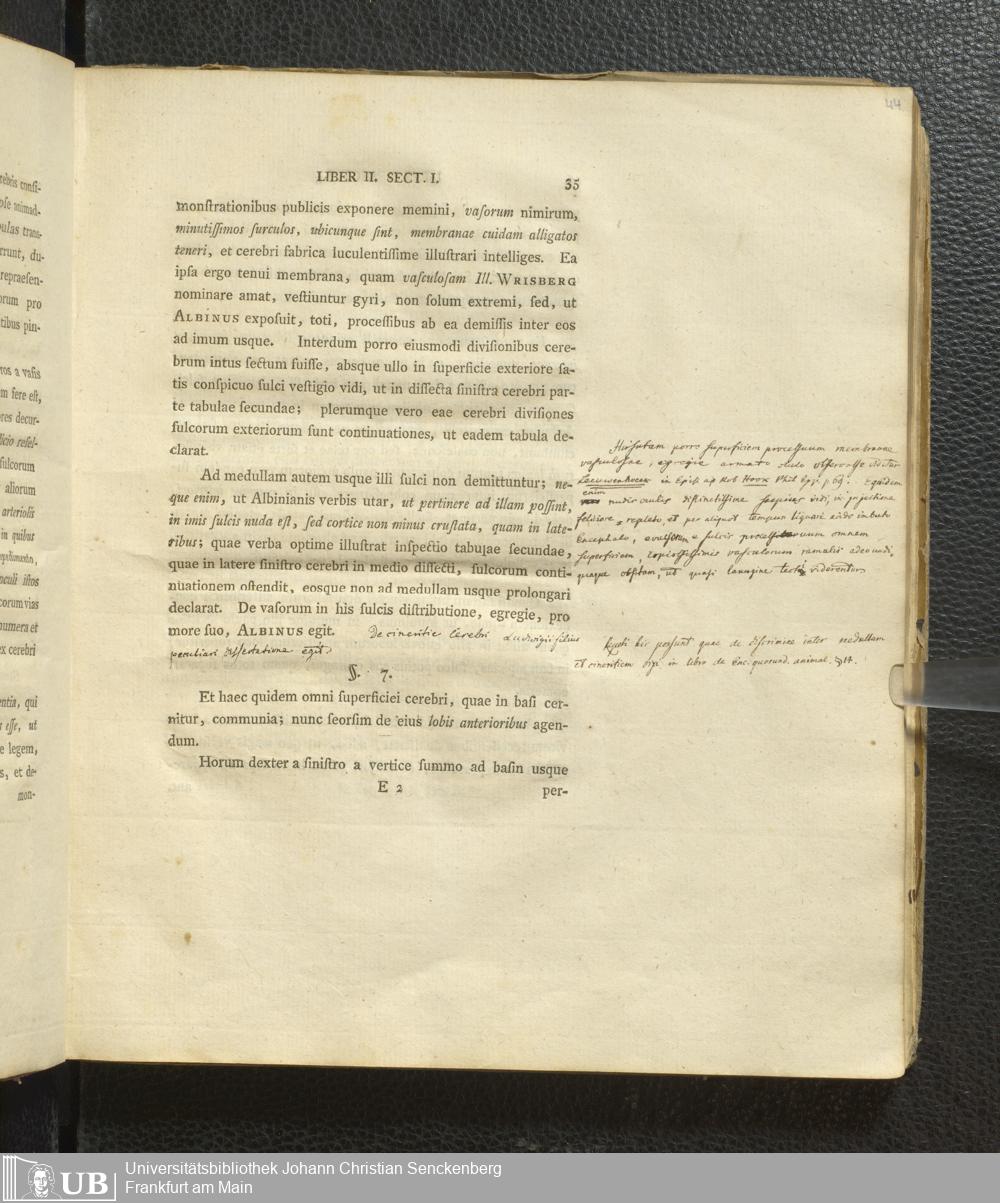 44
LIBER II. SECT. I. 35
monſtrationibus publicis exponere memini, vaſorum nimirum,
minutiſſimos ſurculos, ubicunque ſint, membranae cuidam alligatos
teneri, et cerebri fabrica luculentiſſime illuſtrari intelliges. Ea
ipſa ergo tenui membrana, quam vaſculoſam Ill. WRISBERG
nominare amat, veſtiuntur gyri, non ſolum extremi, ſed, ut
ALBINUS expoſuit, toti, proceſſibus ab ea demiſſis inter eos
ad imum usque. Interdum porro eiusmodi diviſionibus cere-
brum intus ſectum fuiſſe, absque ullo in ſuperficie exteriore ſa-
tis conſpicuo ſulci veſtigio vidi, ut in diſſecta ſiniſtra cerebri par-
te tabulae ſecundae; plerumque vero eae cerebri diviſiones
ſulcorum exteriorum ſunt continuationes, ut eadem tabula de-
clarat.
Ad medullam autem usque illi ſulci non demittuntur; ne-
que enim, ut Albinianis verbis utar, ut pertinere ad illam poſſint,
in imis ſulcis nuda eſt, ſed cortice non minus cruſtata, quam in late-
ribus; quae verba optime illuſtrat inſpectio tabulae ſecundae,
quae in latere ſiniſtro cerebri in medio diſſecti, ſulcorum conti-
nuationem oſtendit, eosque non ad medullam usque prolongari
declarat. De vaſorum in his ſulcis diſtributione, egregie, pro
more ſuo, ALBINUS egit. De cineritie Cerebri Ludwigii filius
peculiari diſſertatione egit.
§. 7.
Et haec quidem omni ſuperficiei cerebri, quae in baſi cer-
nitur, communia; nunc ſeorſim de eius lobis anterioribus agen-
dum.
Horum dexter a ſiniſtro a vertice ſummo ad baſin usque
E 2 per-
Hirſutam porro ſuperficiem proceſſuum membranae
vaſculoſae, egregie armato oculo obſervaſſe videtur
Leeuwenhoek in Epiſt. ap. Rob. Hook Phil. p. 69. Equidem
enim nudis oculis diſtinctiſſime ſaepius vidi, ubi injectione
feliciore repleto, et per aliquot tempus liquori acido imbuto
Encephalo, e ſulcis proceſſuum omnem
ſuperficiem, copioſiſſimis vaſculorum ramulis
obſitam, ut quaſi lanugine tecta viderentur
hic poſſunt quae de diſcrimine inter medullam
et cineritiem dixi in libro de Enc. quorund. animal. §14.
rebris conſi-
oſe animad-
ulas trans-
rrunt, du-
repraeſen-
orum pro
tibus pin-
ros a vaſis
m fere eſt,
res decur-
licio reſel-
ſulcorum
aliorum
arteriolis
in quibus
nculi iſtos
corum vias
numera et
ex cerebri
entia, qui
s eſſe, ut
e legem,
s, et de-
mon-
UB
Universitätsbibliothek Johann Christian Senckenberg
Frankfurt am Main